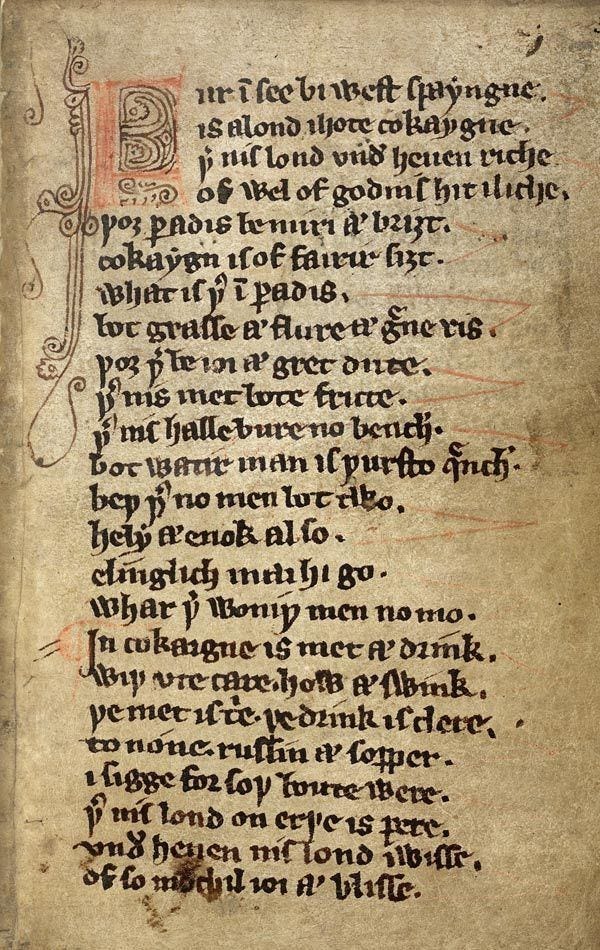 Bur ī see bi west spayngne.
is a lond ihote cokaygne.
þ͛ nis lond vnd͛ heuen riche
of wel of godnis hit iliche.
þoȝ ꝑadis be miri ⁊ briȝt.
cokaygn is of fairir siȝt.
what is þ͛ ī ꝑadis.
bot grasse ⁊ flure ⁊ g͛ne ris.
þoȝ þ͛ be ioi ⁊ gret dute.
þ͛ nis met bote frute.
þ͛ nis halle bure no bench.
bot watir man is þursto qͣnch͛.
beþ þ͛ no men bot two.
hely ⁊ enok also.
elinglich mai hi go.
whar þ͛ woniþ men no mo.
In cokaigne is met ⁊ drink.
wiþ vte care. how ⁊ swink.
þe met is t͛e. þe drink is clere.
to none. russin ⁊ sopper.
i sigge for soþ boute were.
þ͛ nis lond on erþe is pere.
vnd͛ heuen nis lond iwisse.
of so mochil ioi ⁊ blisse.